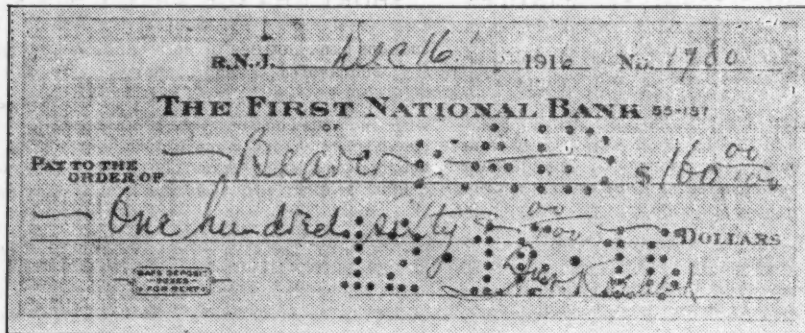 R.N.J. Dec 16 1916 No. 1780
THE FIRST NATIONAL BANK 55-157
OF
PAY TO THE ORDER OF Bearer $ 160 00/100
One hundred sixty 00/00 DOLLARS
SAFE DEPOSIT
BOXES
FOR RENT